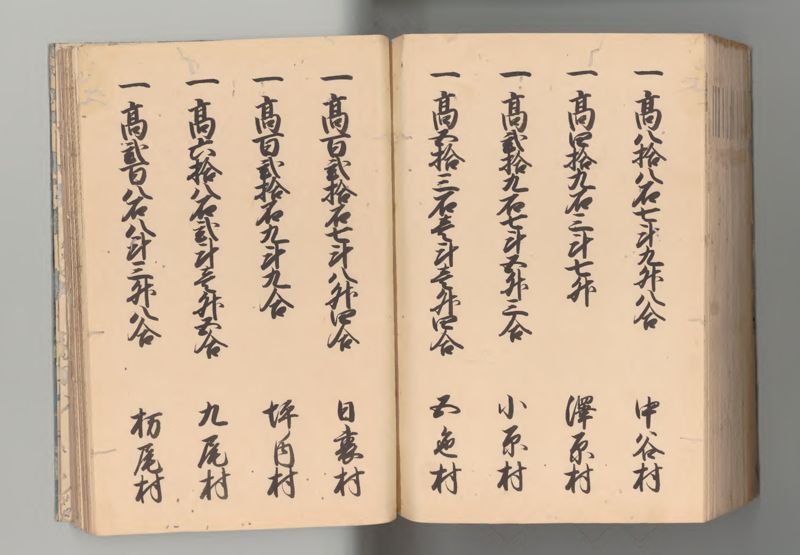 一 高八拾八石七斗九升八合 中谷村
一 高四拾九石三斗七升 澤原村
一 高貳拾九石七斗五升三合 小原村
一 高五拾三石壱斗壱升四合 五色村
一 高百貳拾石七斗八升四合 日裏村
一 高百貳拾石九斗九合 坪内村
一 高六拾八石貳斗壱升五合 九尾村
一 高貳百八石八斗三升八合 栃尾村